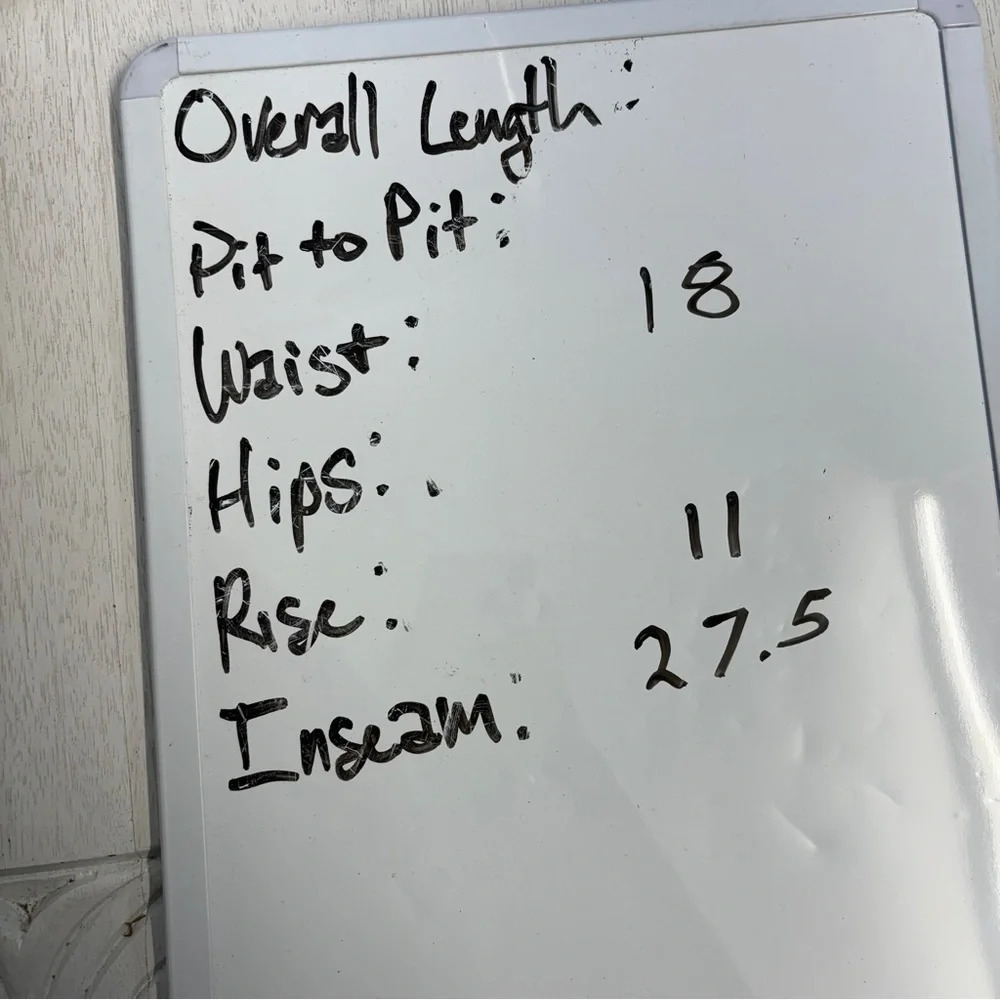 Overall Length:
Pit to Pit:
Waist: 18
Hips:
Rise: 11
Inseam: 27.5